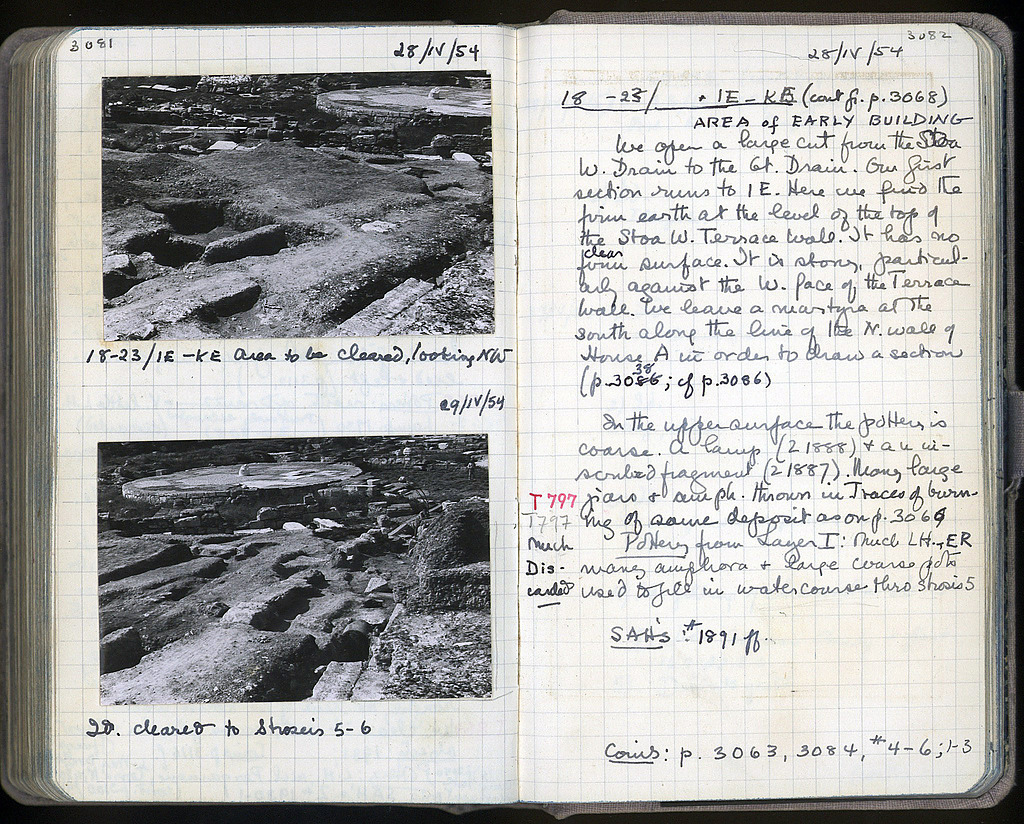 3081
28/IV/54
18-23/IE-KE Area to be cleared, looking NW
29/IV/54
Id. cleared to Stroseis 5-6
3082
28/IV/54
18 -23/ • IE-KE (cont. fr. p. 3068)
AREA of EARLY BUILDING
We open a large cut from the Stoa
W. Drain to the Gt. Drain. Our first
section runs to IE. Here we find the
firm earth at the level of the top of
the Stoa W. Terrace Wall. It has no
clear
firm surface. It is stony, particul-
arly against the W. face of the Terrace
Wall. We leave a martyra at the
south along the line of the N. wall of
House A in order to draw a section
38
(p. 3086; cf p. 3086)
In the upper surface the pottery is
coarse. A lamp (L1888) + an in-
scribed fragment (L1887). Many large
T 797 jars + amph. thrown in Traces of burn-
T797 ing of same deposit as on p. 3066
Much Pottery from Layer I: Much LH-ER
Dis- many amphora + large coarse pots
carded used to fill in watercourse thro Strosis 5
SAH's: #1891 ff.
Coins: p. 3063, 3084, #4-6; 1-3